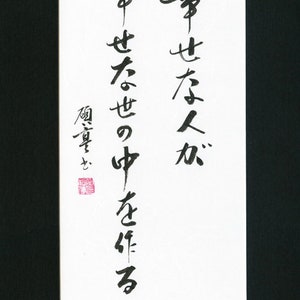 幸せな人が
幸せな世の中を作る